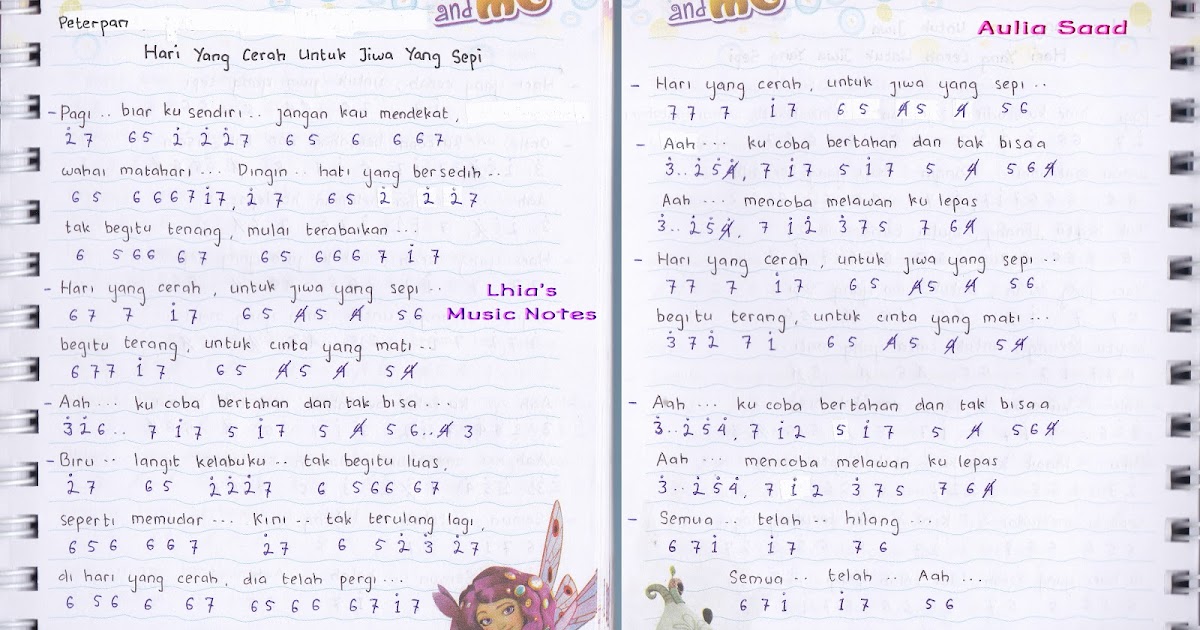 Peterpan
and me
Hari Yang Cerah Untuk Jiwa Yang Sepi
-Pagi .. biar ku sendiri .. jangan kau mendekat,
2̇ 7 6 5 1̇ 2̇ 2̇ 7 6 5 6 6 6 7
wahai matahari ... Dingin .. hati yang bersedih ..
6 5 6 6 6 7 1̇ 7, 2̇ 7 6 5 2̇ 2̇ 2̇ 7
tak begitu tenang, mulai terabaikan ...
6 5 6 6 6 7 6 5 6 6 6 7 1̇ 7
- Hari yang cerah, untuk jiwa yang sepi ..
6 7 7 1̇ 7 6 5 4̸ 5 4̸ 5 6
Lhia's
Music Notes
begitu terang, untuk cinta yang mati ...
6 7 7 1̇ 7 6 5 4̸ 5 4̸ 5 4̸
- Aah ... ku coba bertahan dan tak bisa ...
3̇ 2̇ 6.. 7 1̇ 7 5 1̇ 7 5 4̸ 5 6..4̸ 3
-Biru .. langit kelabuku .. tak begitu luas,
2̇ 7 6 5 2̇ 2̇ 2̇ 7 6 5 6 6 6 7
seperti memudar ... Kini .. tak terulang lagi,
6 5 6 6 6 7 2̇ 7 6 5 2̇ 3̇ 2̇ 7
di hari yang cerah, dia telah pergi ...
6 5 6 6 6 7 6 5 6 6 6 7 1̇ 7
and me
Aulia Saad
- Hari yang cerah, untuk jiwa yang sepi ..
7 7 7 1̇ 7 6 5 4̸ 5 4̸ 5 6
- Aah ... ku coba bertahan dan tak bisaa
3̇.. 2̇ 5̇ 4̸̇, 7 1̇ 7 5 1̇ 7 5 4̸ 5 6 4̸
Aah ... mencoba melawan ku lepas
3̇.. 2̇ 5̇ 4̸̇, 7 1̇ 2̇ 3̇ 7 5 7 6 4̸
- Hari yang cerah, untuk jiwa yang sepi ..
7 7 7 1̇ 7 6 5 4̸ 5 4̸ 5 6
begitu terang, untuk cinta yang mati ...
3̇ 7 2̇ 7 1̇ 6 5 4̸ 5 4̸ 5 4̸
- Aah ... ku coba bertahan dan tak bisaa
3̇.. 2̇ 5̇ 4̇, 7 1̇ 2 5 1̇ 7 5 4̸ 5 6 4̸
Aah ... mencoba melawan ku lepas
3̇.. 2̇ 5̇ 4̇, 7 1̇ 2 3̇ 7 5 7 6 4̸
- Semua .. telah .. hilang ...
6 7 1̇ 1̇ 7 7 6
Semua .. telah .. Aah ...
6 7 1̇ 1̇ 7 5 6